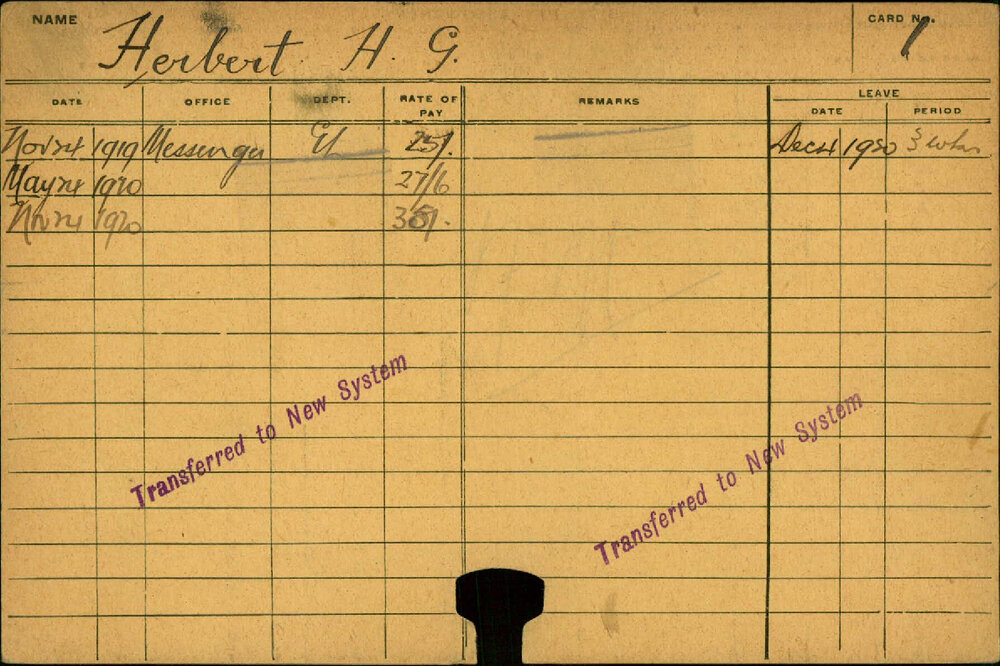 NAME Herbert H. G. CARD No. 1
DATE OFFICE DEPT. RATE OF PAY REMARKS LEAVE
DATE PERIOD
Nov 24 1919 Messenger 25/. Dec 1920
May 24 1920 27/6
Nov 24 1920
Transferred to New System
Transferred to New System